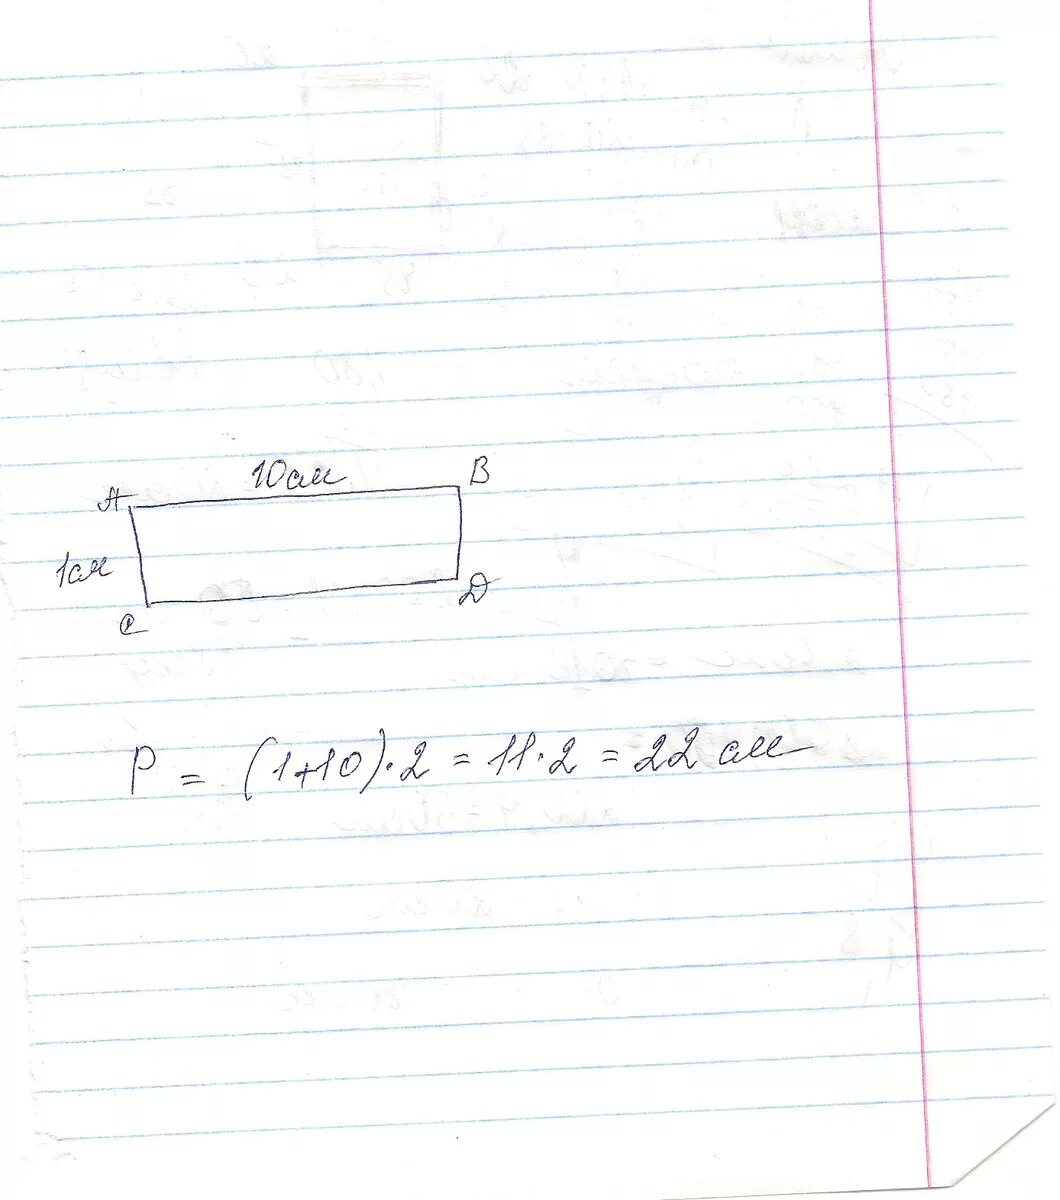 10см
A B
1см
C D
P = (1+10)·2 = 11·2 = 22 см